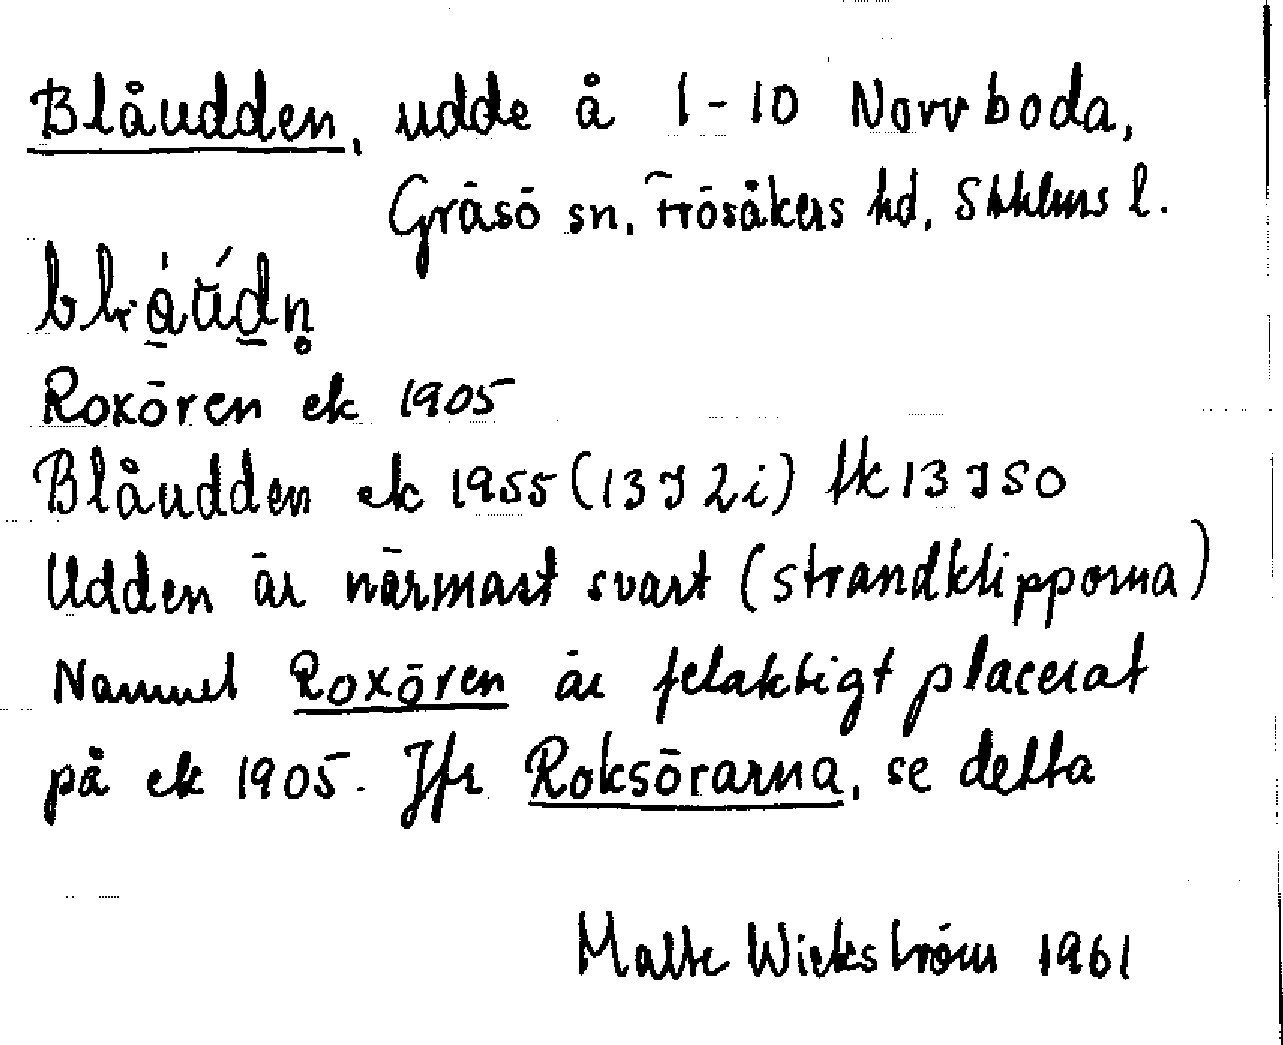 Blåudden, udde å 1-10 Norrboda,
Gräsö sn, Frösåkers hd, Sthlms l.
Roxören ek 1905
Blåudden ek 1955 (13 J 2i) tk 13 J SO
Udden är närmast svart (strandklipporna)
Namnet Roxören är felaktigt placerat
på ek 1905. Jfr Roksörarna, se detta
Malte Wickström 1961